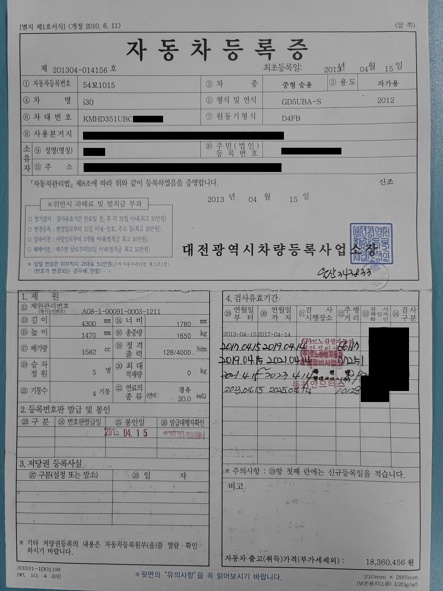 [별지 제1호서식] <개정 2010. 6. 11> (앞 쪽)
자동차등록증
제 201304-014156 호 최초등록일: 2013년 04월 15일
① 자동차등록번호 54모1015 ② 차 종 중형 승용 ③ 용도 자가용
④ 차 명 i30 ⑤ 형식 및 연식 GD5UBA-S 2012
⑥ 차 대 번 호 KMHD351UBC ⑦ 원동기형식 D4FB
⑧ 사용본거지
소유자 ⑨ 성명(명칭) ⑩ 주민(법인)등록번호
⑪ 주 소
「자동차관리법」 제8조에 따라 위와 같이 등록하였음을 증명합니다. 신조
2013 년 04 월 15 일
※위반시 과태료 및 범칙금 부과
대전광역시차량등록사업소장
1. 제 원
⑫ 제원관리번호 A08-1-00091-0003-1211
⑬ 길 이 4300 mm ⑭ 너 비 1780 mm
⑮ 높 이 1470 mm ⑯ 총중량 1650 kg
⑰ 배기량 1582 cc ⑱ 정격출력 128/4000
⑲ 승차정원 5 명 ⑳ 최대적재량 0 kg
기통수 4 기통 연료의 종류 경유
20.0
2. 등록번호판 발급 및 봉인
구 분 번호판발급일 봉인일 발급대행자확인
04. 15
3. 저당권 등록사실
구분(설정 또는 말소) 일 자
※ 기타 저당권등록의 내용은 자동차등록원부(을)를 열람·확인
하시기 바랍니다.
4. 검사유효기간
연월일부터 연월일까지 검사시행장소 주행거리 검사구분
2013-04-15 2017-04-14
2017.04.15 2019.04.14
2019.04.15 2021.04.14
※ 주의사항 : 항 첫째 란에는 신규등록일을 적습니다.
비고
자동차 출고(취득)가격(부가세제외) : 18,360,456 원
※뒷면의 "유의사항"을 꼭 읽어보시기 바랍니다.
210mm × 297mm